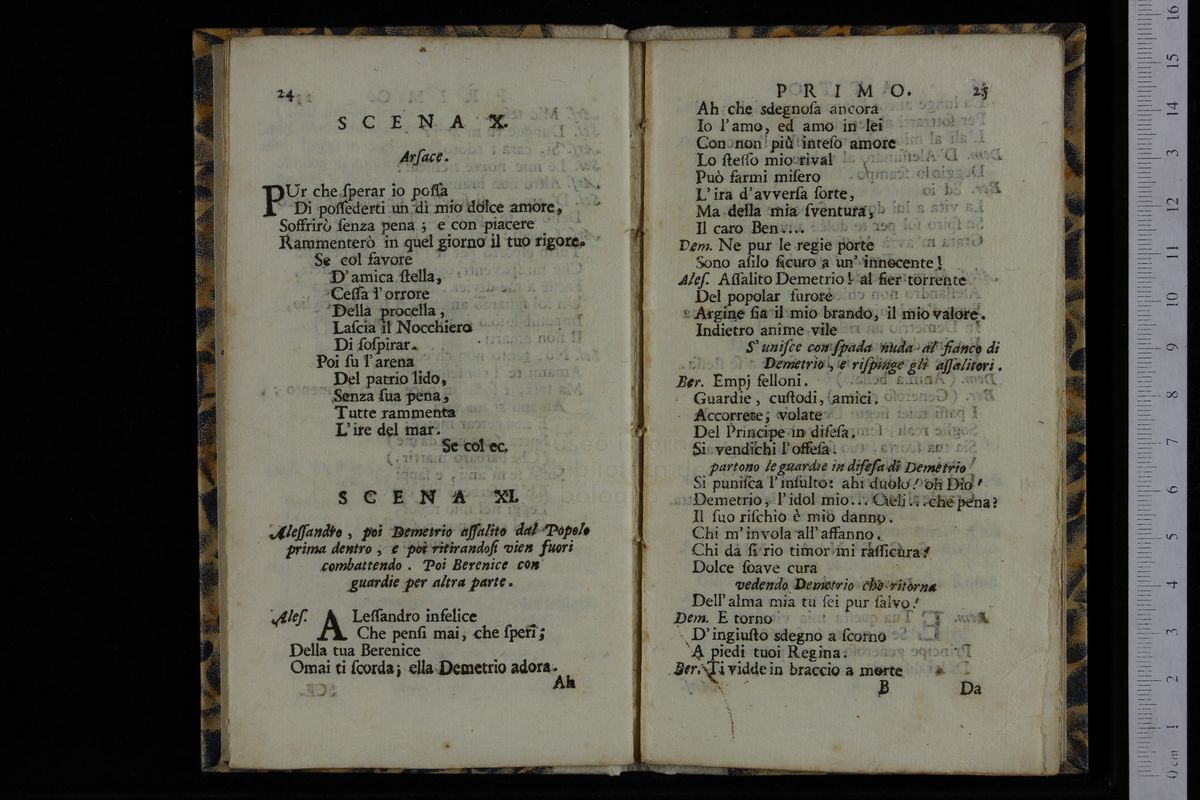 24
SCENA X.
Arſace.
PUr che ſperar io poſſa
Di poſſederti un dì mio dolce amore,
Soffrirò ſenza pena ; e con piacere
Rammenterò in quel giorno il tuo rigore.
Se col favore
D'amica ſtella,
Ceſſa l'orrore
Della procella,
Laſcia il Nocchiero
Di ſoſpirar.
Poi ſu l'arena
Del patrio lido,
Senza ſua pena,
Tutte rammenta
L'ire del mar.
Se col ec.
SCENA XI.
Aleſſandro, poi Demetrio aſſalito dal Popolo
prima dentro, e poi ritirandoſi vien fuori
combattendo. Poi Berenice con
guardie per altra parte.
Aleſ. ALeſſandro infelice
Che penſi mai, che ſperi;
Della tua Berenice
Omai ti ſcorda; ella Demetrio adora.
Ah
PRIMO. 25
Ah che sdegnoſa ancora
Io l'amo, ed amo in lei
Con non più inteſo amore
Lo ſteſſo mio rival
Può farmi miſero
L'ira d'avverſa ſorte,
Ma della mia ſventura,
Il caro Ben....
Dem. Ne pur le regie porte
Sono aſilo ſicuro a un' innocente!
Aleſ. Aſſalito Demetrio! al fier torrente
Del popolar furore
Argine ſia il mio brando, il mio valore.
Indietro anime vile
S'uniſce con ſpada nuda al fianco di
Demetrio, e riſpinge gli aſſalitori.
Ber. Empj felloni.
Guardie, cuſtodi, amici.
Accorrete; volate
Del Principe in difeſa.
Si vendichi l'offeſa.
partono le guardie in difeſa di Demetrio
Si puniſca l'inſulto: ahi duolo! oh Dio!
Demetrio, l'idol mio... Cieli... che pena?
Il ſuo riſchio è mio danno.
Chi m'invola all'affanno.
Chi da ſi rio timor mi raſſicura?
Dolce ſoave cura
vedendo Demetrio che ritorna
Dell'alma mia tu ſei pur ſalvo!
Dem. E torno
D'ingiuſto sdegno a ſcorno
A piedi tuoi Regina.
Ber. Ti vidde in braccio a morte
B Da